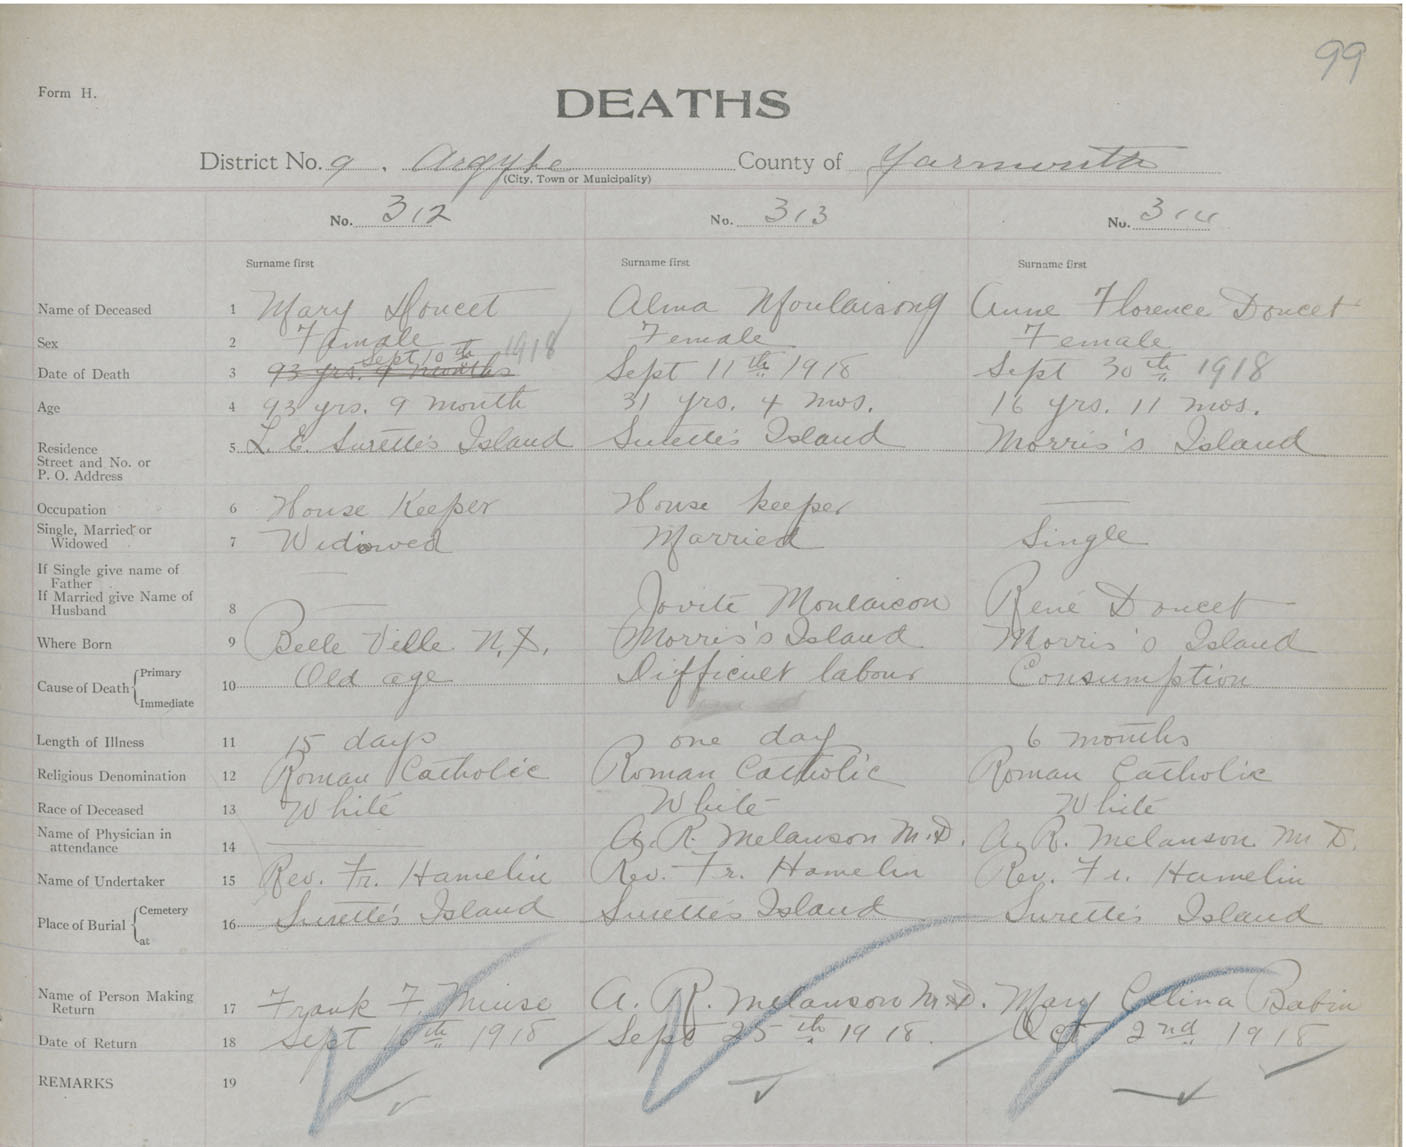 99
Form H.
DEATHS
District No. 9. Argyle County of Yarmouth
(City, Town or Municipality)
No. 312 No. 313 No. 314
Surname first Surname first Surname first
Name of Deceased 1 Mary Doucet Alma Moulaisong Anne Florence Doucet
Sex 2 Female Female Female
Sept 10th 1918
Date of Death 3 93 yrs. 9 months Sept 11th 1918 Sept 30th 1918
Age 4 93 yrs. 9 month 31 yrs. 4 mos. 16 yrs. 11 mos.
Residence
Street and No. or
P. O. Address
5 L. E. Surette's Island Surette's Island Morris's Island
Occupation 6 House Keeper House keeper —
Single, Married or
Widowed 7 Widowed Married Single
If Single give name of
Father —
If Married give Name of
Husband 8 — Jovite Moulaison René Doucet
Where Born 9 Belle Ville N.S. Morris's Island Morris's Island
Cause of Death { Primary
Immediate
10 Old age Difficult labour Consumption
Length of Illness 11 15 days one day 6 months
Religious Denomination 12 Roman Catholic Roman Catholic Roman Catholic
Race of Deceased 13 White White White
Name of Physician in
attendance 14 — A. R. Melanson M.D. A. R. Melanson M D.
Name of Undertaker 15 Rev. Fr. Hamelin Rev. Fr. Hamelin Rev. Fr. Hamelin
Place of Burial { Cemetery
at
16 Surette's Island Surette's Island Surette's Island
Name of Person Making
Return 17 Frank F. Miuse A. R. Melanson M.D. Mary Celina Babin
Date of Return 18 Sept 16th 1918 Sept 25th 1918. Oct 2nd 1918
REMARKS 19